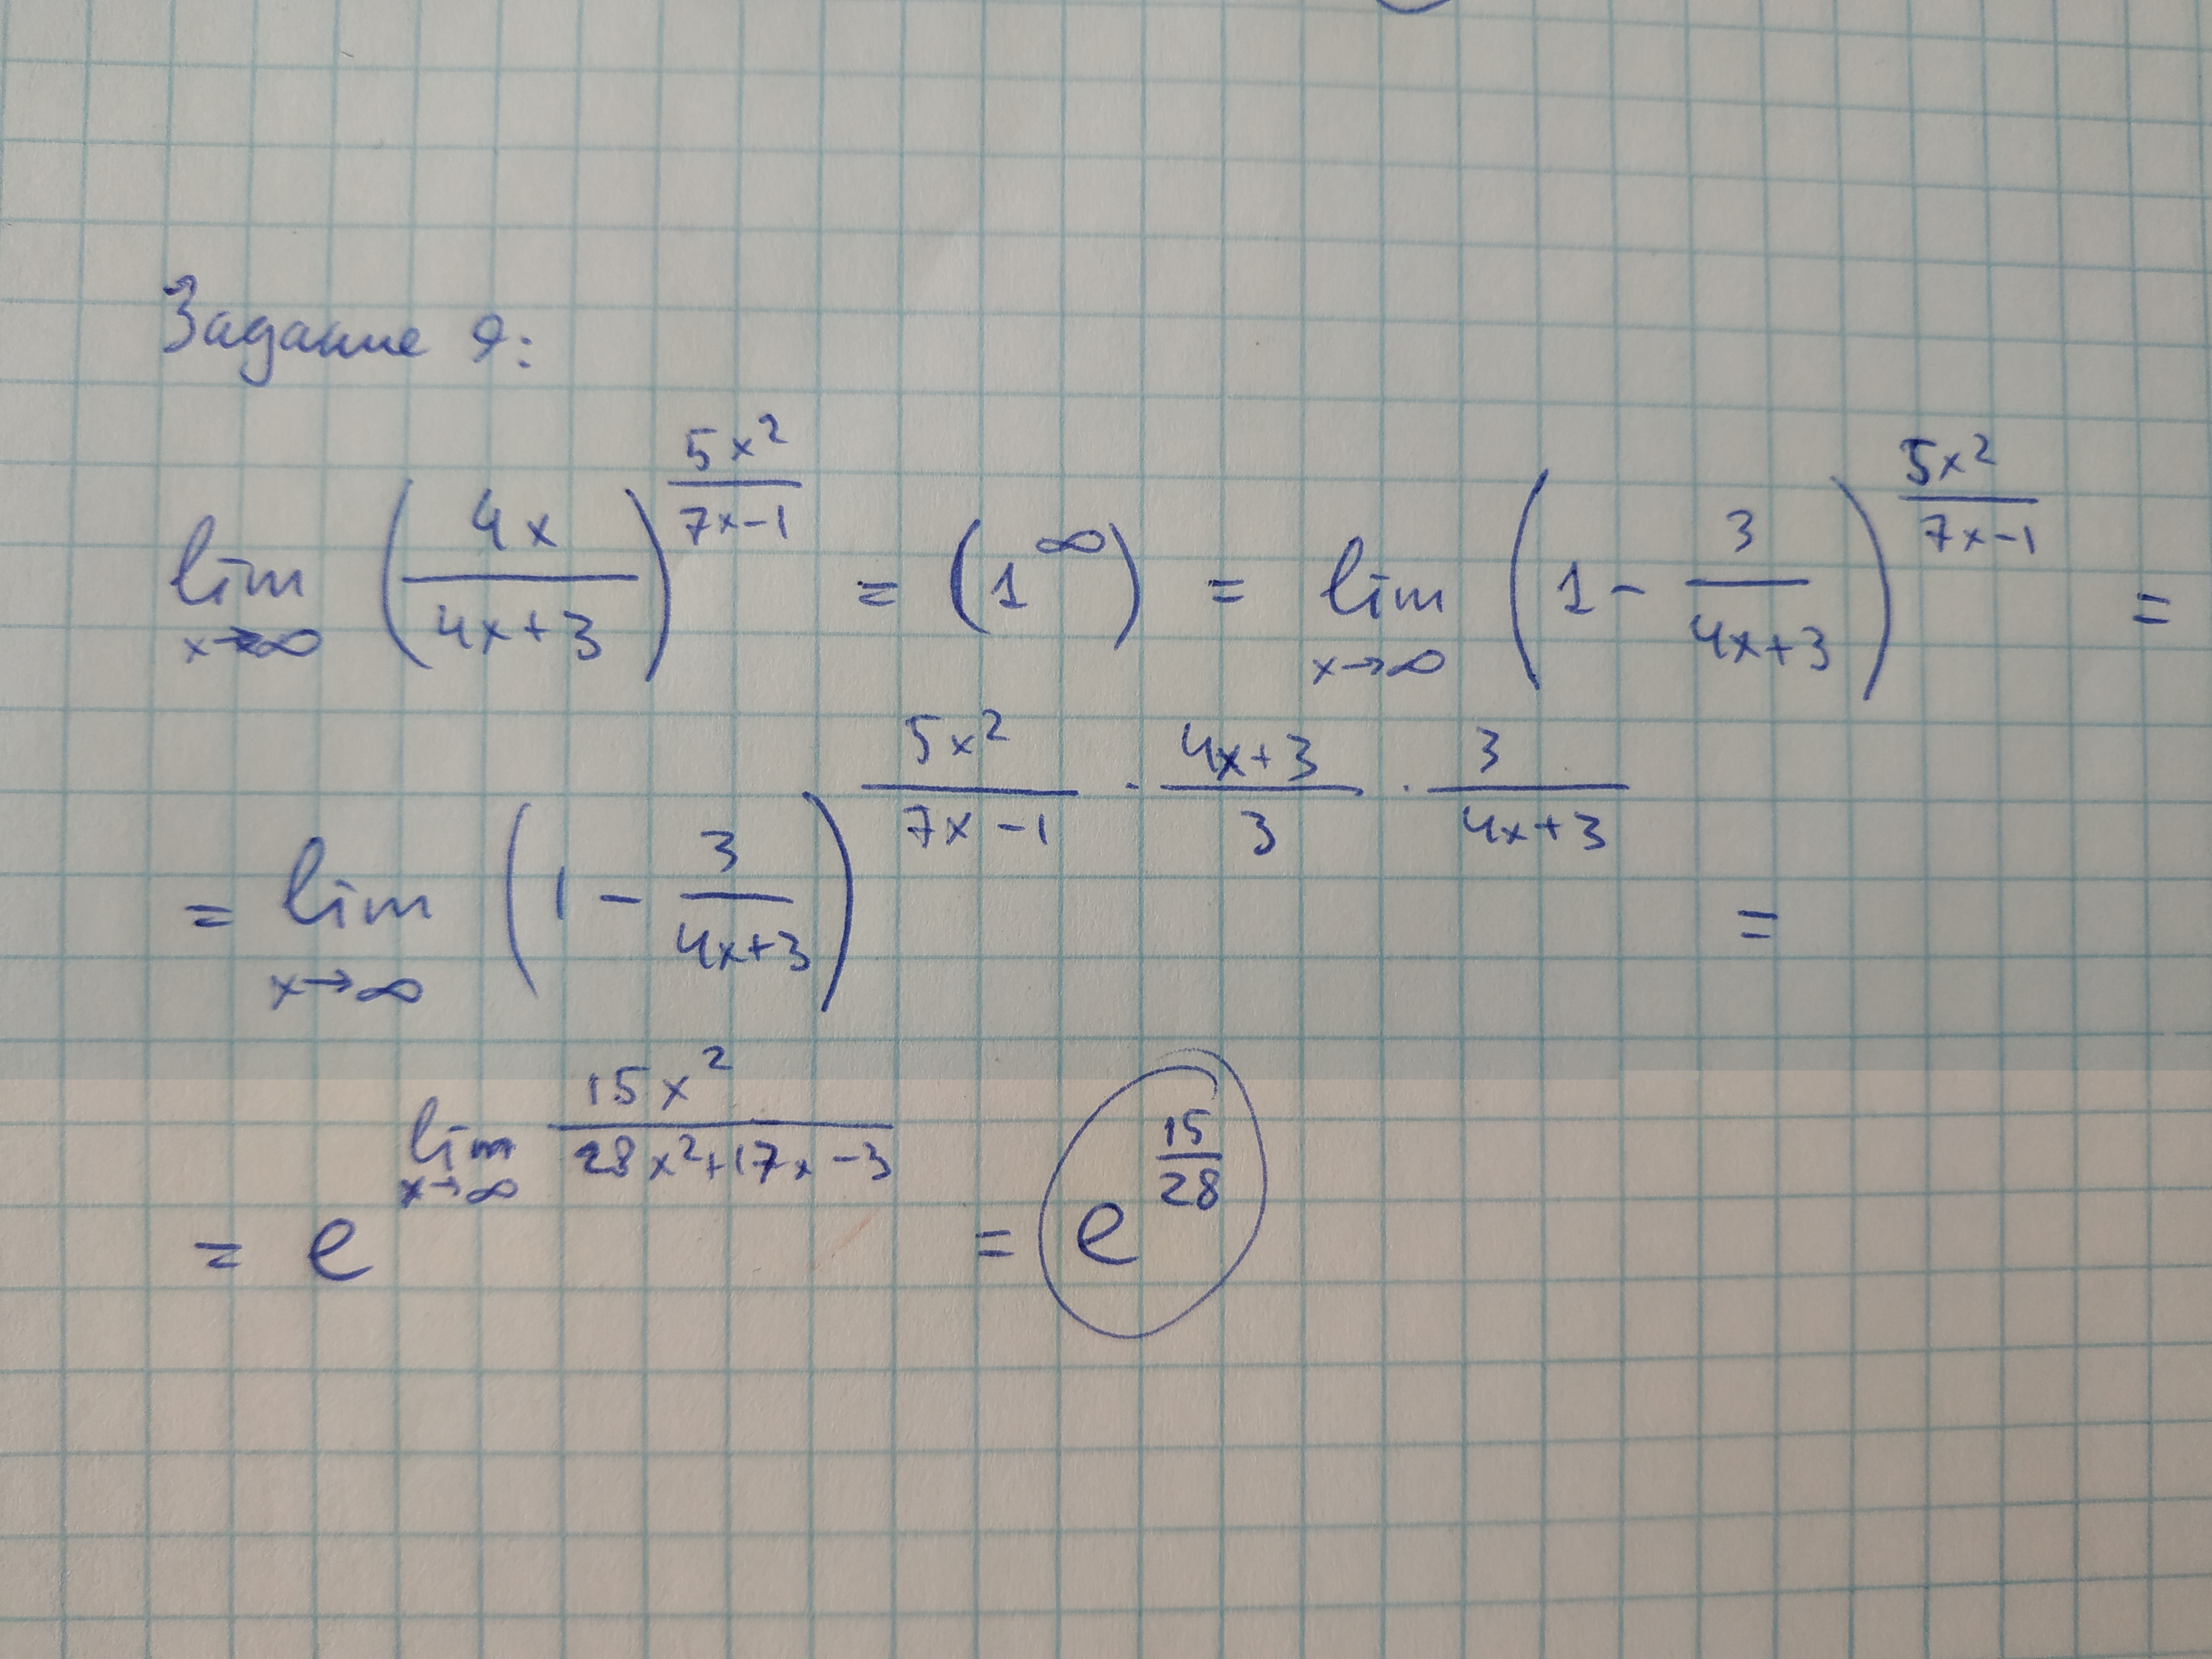 Задание 9:
lim x→∞ (4x/(4x+3))^(5x²/(7x-1)) = (1^∞) = lim x→∞ (1 - 3/(4x+3))^(5x²/(7x-1)) =
= lim x→∞ (1 - 3/(4x+3))^(5x²/(7x-1) · (4x+3)/3 · 3/(4x+3)) =
= e^(lim x→∞ 15x²/(28x²+17x-3)) = e^(15/28)